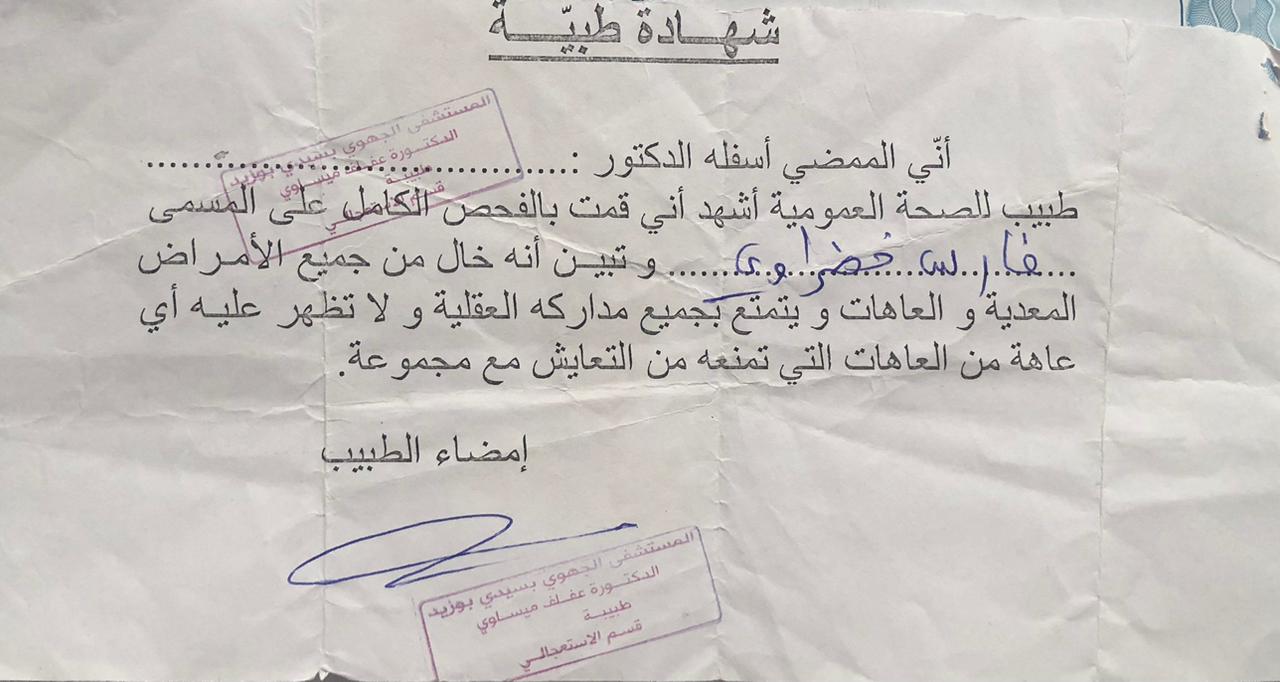 شهادة طبيّة
أنّي الممضي أسفله الدكتور :
المستشفى الجهوي بسيدي بوزيد
الدكتورة عفاف ميساوي
طبيبة
قسم
طبيب للصحة العمومية أشهد أني قمت بالفحص الكامل على المسمى
فارس خضراوي و تبين أنه خال من جميع الأمراض
المعدية و العاهات و يتمتع بجميع مداركه العقلية و لا تظهر عليه أي
عاهة من العاهات التي تمنعه من التعايش مع مجموعة.
إمضاء الطبيب
المستشفى الجهوي بسيدي بوزيد
الدكتورة عفاف ميساوي
طبيبة
قسم الاستعجالي